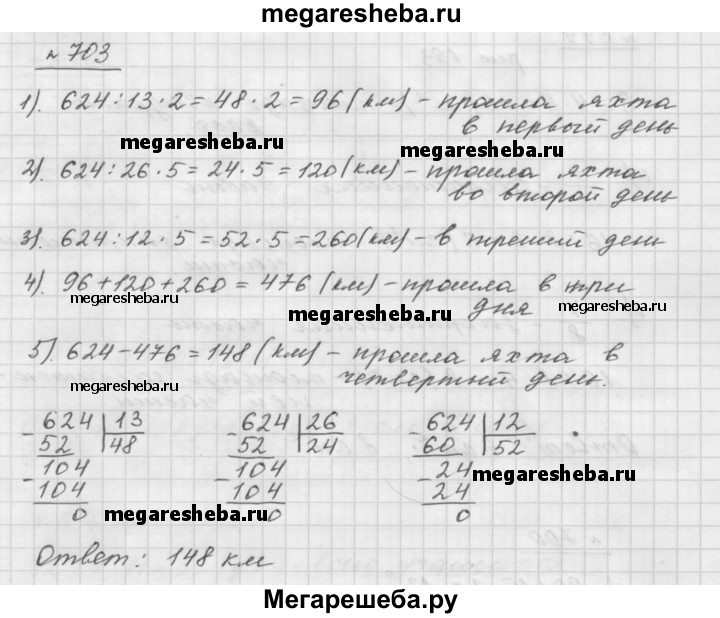 megaresheba.ru
№ 703
1). 624 : 13 · 2 = 48 · 2 = 96 (км) – прошла яхта
в первый день
megaresheba.ru
megaresheba.ru
2). 624 : 26 · 5 = 24 · 5 = 120 (км) – прошла яхта
во второй день
3). 624 : 12 · 5 = 52 · 5 = 260 (км) – в третий день
4). 96 + 120 + 260 = 476 (км) – прошла в три
дня
megaresheba.ru
megaresheba.ru
megaresheba.ru
5). 624 – 476 = 148 (км) – прошла яхта в
четвертый день.
megaresheba.ru
megaresheba.ru
624 | 13 624 | 26 624 | 12
52 | 48 52 | 24 60 | 52
104 104 24
104 104 24
0 0 0
megaresheba.ru
megaresheba.ru
megaresheba.ru
Ответ: 148 км
Мегарешеба.ру